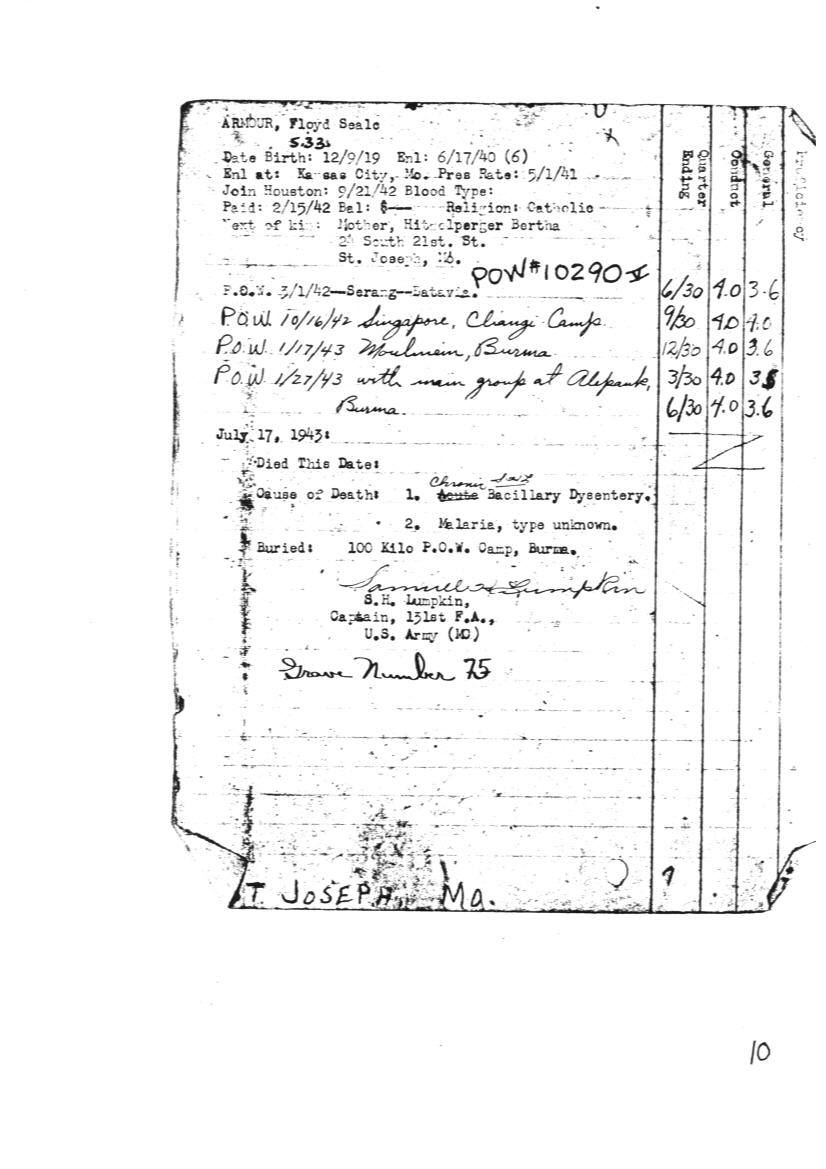 ARMOUR, Floyd Seale
S33
Date Birth: 12/9/19 Enl: 6/17/40 (6)
Enl at: Kansas City, Mo. Pres Rate: 5/1/41
Join Houston: 9/21/42 Blood Type:
Paid: 2/15/42 Bal: $— Religion: Catholic
Next of kin: Mother, Bertha
South 21st. St.
St. Joseph, Mo.
POW#10290
P.O.W. 3/1/42—Serang—Batavia.
P.O.W. 10/16/42 Singapore, Changi Camp
P.O.W. 1/17/43 Moulmein, Burma
P.O.W. 1/27/43 with main group at Alepauk,
Burma.
July 17, 1943:
Died This Date:
Chronic
Cause of Death: 1. Acute Bacillary Dysentery.
2. Malaria, type unknown.
Buried: 100 Kilo P.O.W. Camp, Burma.
Samuel H Lumpkin
S.H. Lumpkin,
Captain, 131st F.A.,
U.S. Army (MC)
Grave Number 75
T JOSEPH, Mo.
Quarter Ending
Conduct
General
Proficiency
6/30 4.0 3.6
9/30 4.0 4.0
12/30 4.0 3.6
3/30 4.0 3
6/30 4.0 3.6
10